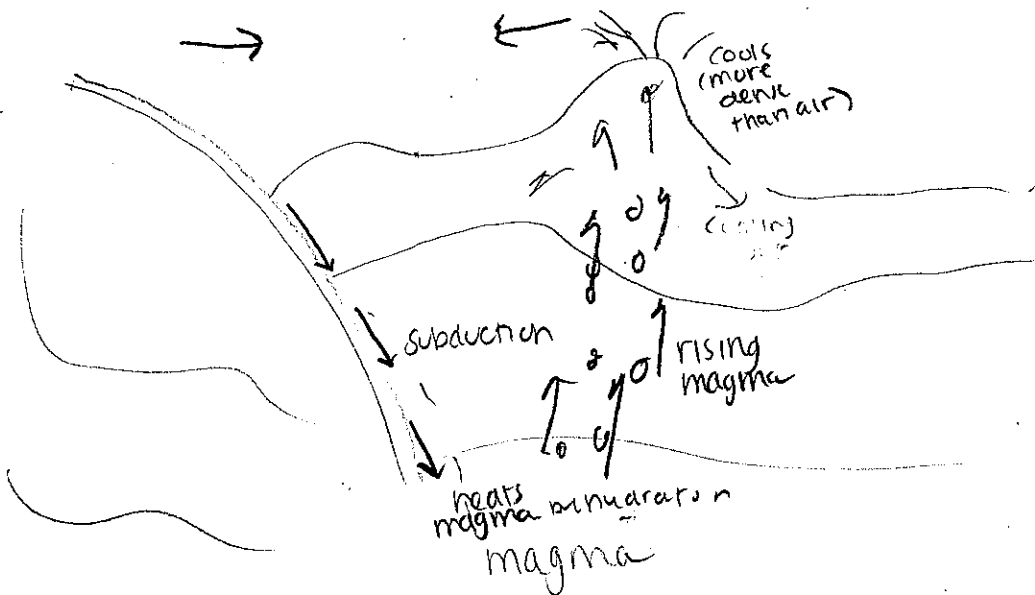 cools
(more
dense
than air)
subduction
rising
magma
heats
magma
magma